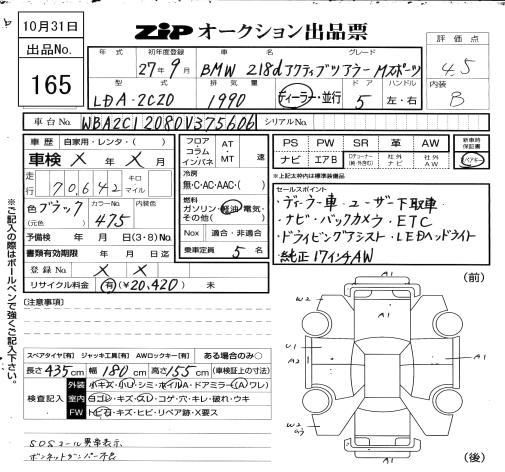 10月31日
出品No.
165
ZIP オークション出品票
評価点
4.5
内装
B
年式 初年度登録 車名 グレード
27年9月 BMW 218d アクティブツアラー Mスポーツ
型式 排気量 ドア ハンドル
LDA-2C20 1990 ディーラー・並行 5 左・右
車台No. WBA2C12080V375606 シリアルNo.
車歴 自家用・レンタ・( )
車検 X 年 X 月
走行 70,642 キロ マイル
色 ブラック カラーNo. 475 内装色
(元色 )
予備検 年 月 日(3・8)No.
書類有効期限 年 月 日迄
登録No. X X
リサイクル料金 有(¥20,420) 未
フロア コラム インパネ AT・MT 速
冷房
無・C・AC・AAC・( )
燃料
ガソリン・軽油・電気・その他( )
Nox 適合・非適合
乗車定員 5 名
PS PW SR 革 AW
ナビ エアB 社外ナビ 社外AW
新車時保証書
※上記太枠内は標準装備品
セールスポイント
・ディーラー車 ユーザー下取車
・ナビ・バックカメラ・ETC
・ドライビングアシスト・LEDヘッドライト
・純正17インチAW
※ご記入の際はボールペンで強くご記入下さい。
[注意事項]
スペアタイヤ[有] ジャッキ工具[有] AWロックキー[有] ある場合のみ○
長さ435cm 幅180cm 高さ155cm (車検証上の寸法)
検査記入
外装 小キズ・小U・シミ・ホイルA・ドアミラー(A・ワレ)
室内 ヨゴレ・キズ・スレ・コゲ・穴・キレ・破れ・ウキ
FW トビ石・キズ・ヒビ・リペア跡・X要ス
SOSコール異常表示
ボンネットダンパー不良
(前)
A1
W2
A1
U1
A2
A1
W2
A1
(後)